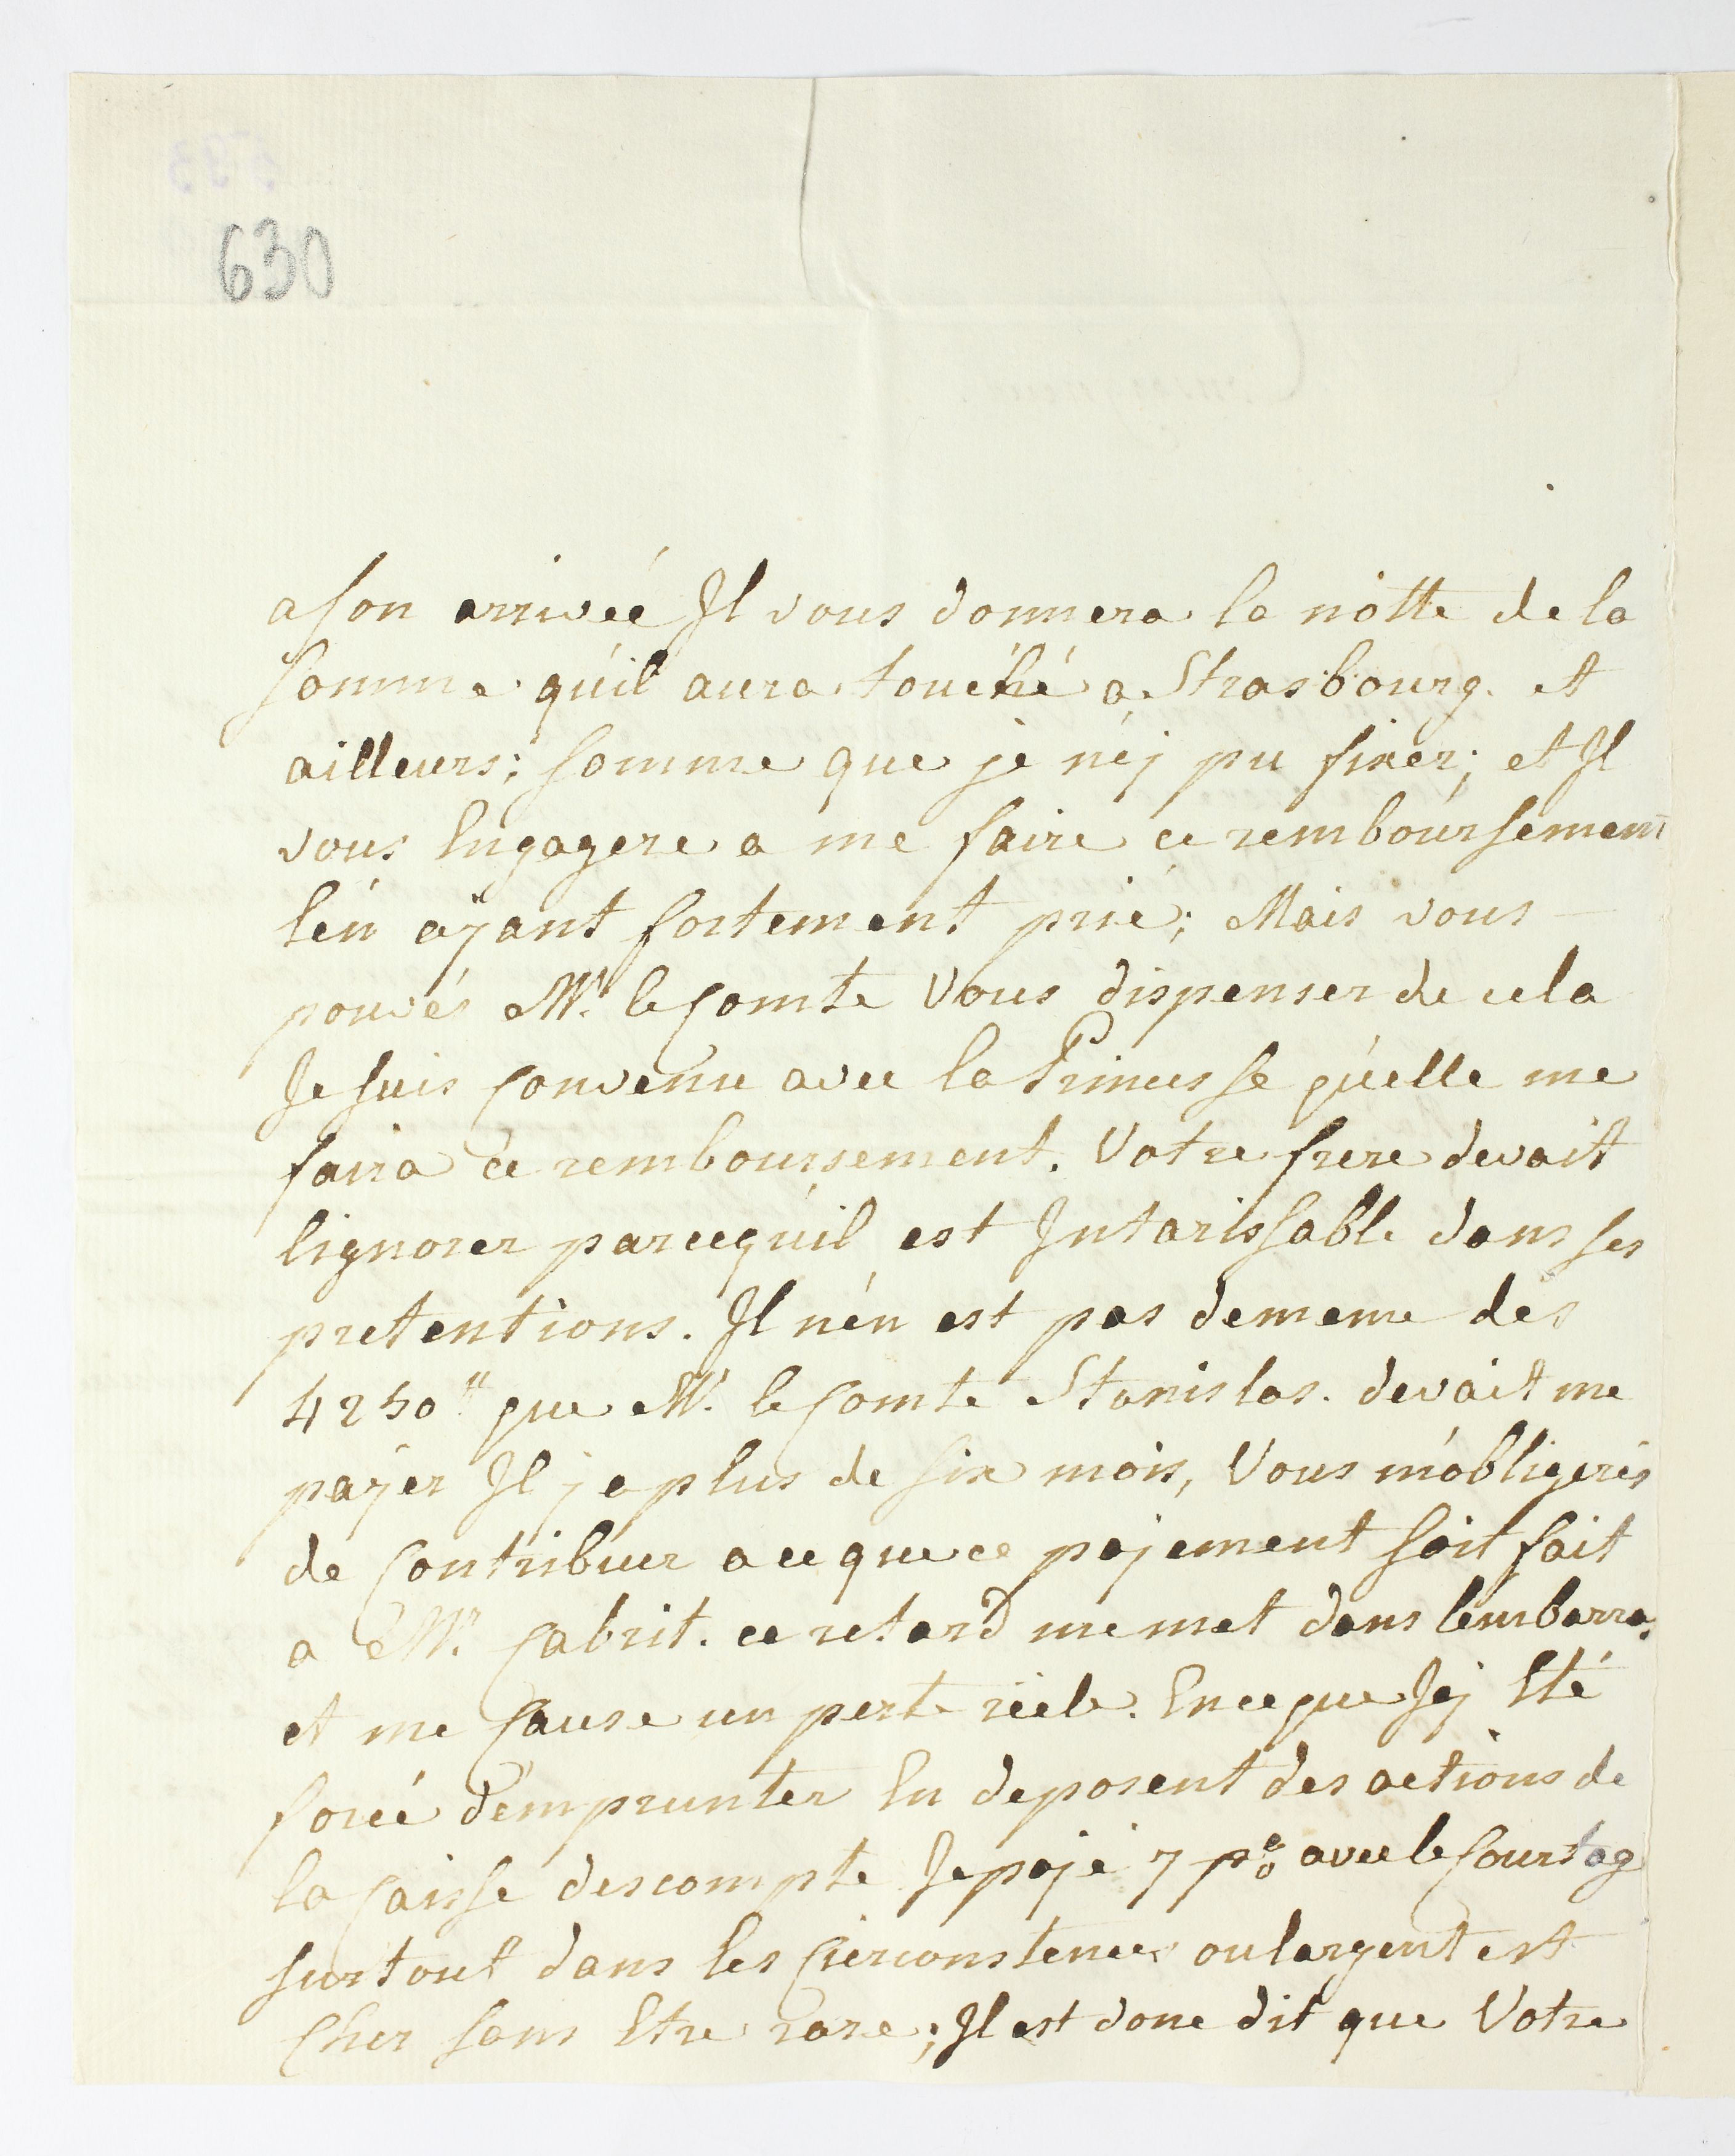 630
a son arriveé Il vous donnera la notte de la
somme qu'il aura touché a Strasbourg. et
ailleurs; somme que je n'éj pu fixer; et Il
vous Engagere a me faire ce remboursement
l'en ayant fortement prié; Mais vous
pouvés Mr. le Comte Vous dispenser de cela
Je suis Convenu avec la Princesse qu'elle me
faira ce remboursement. Votre frere devait
lignorer parcequ'il est Intarissable dans ses
pretentions. Il n'én est pas dememe des
4250 ₶ que Mr. le Comte Stanislas. devait me
payer Il j a plus de six mois, Vous m'obligerés
de Contribuer a ceque ce pajement soit fait
a Mr. Cabrit. ce retard me met dans lembarra.
et me Cause un perte réele. En ceque Jéj Eté
forcé d'emprunter En deposent des actions de
la Caisse descompte Je pajé 7 p% avec le Courtag
surtout dans les Circonstences oulargent est
Cher sans Etre rare; Il est donc dit que Votre